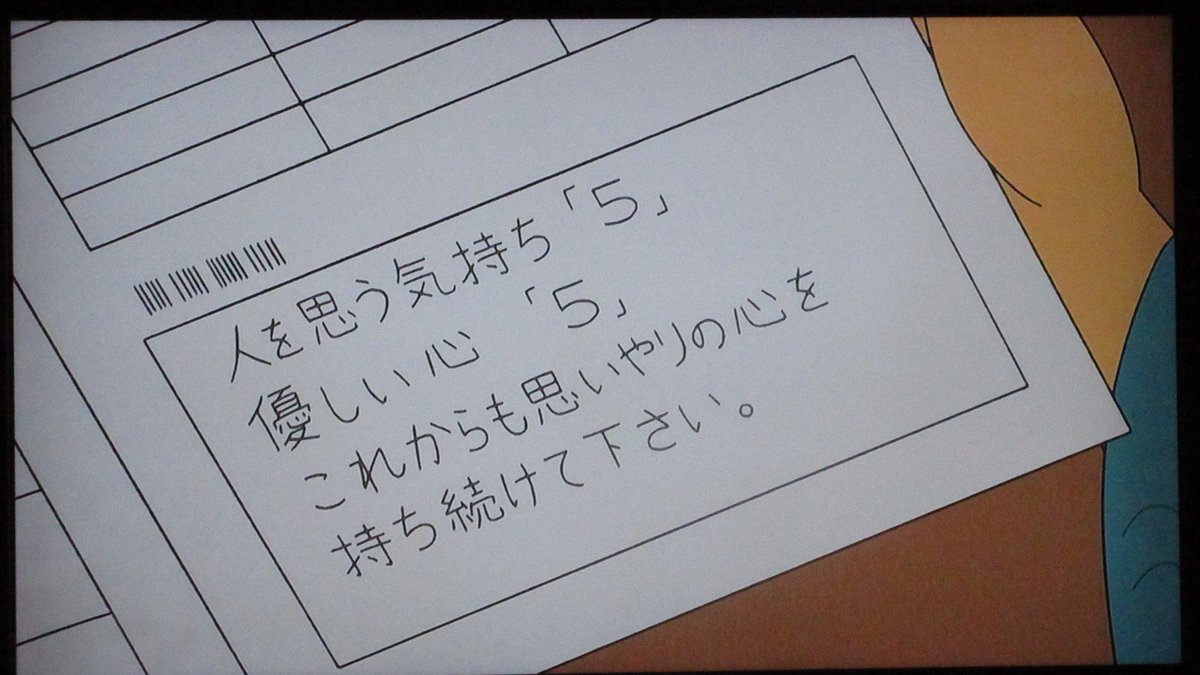 人を思う気持ち「5」
優しい心「5」
これからも思いやりの心を
持ち続けて下さい。